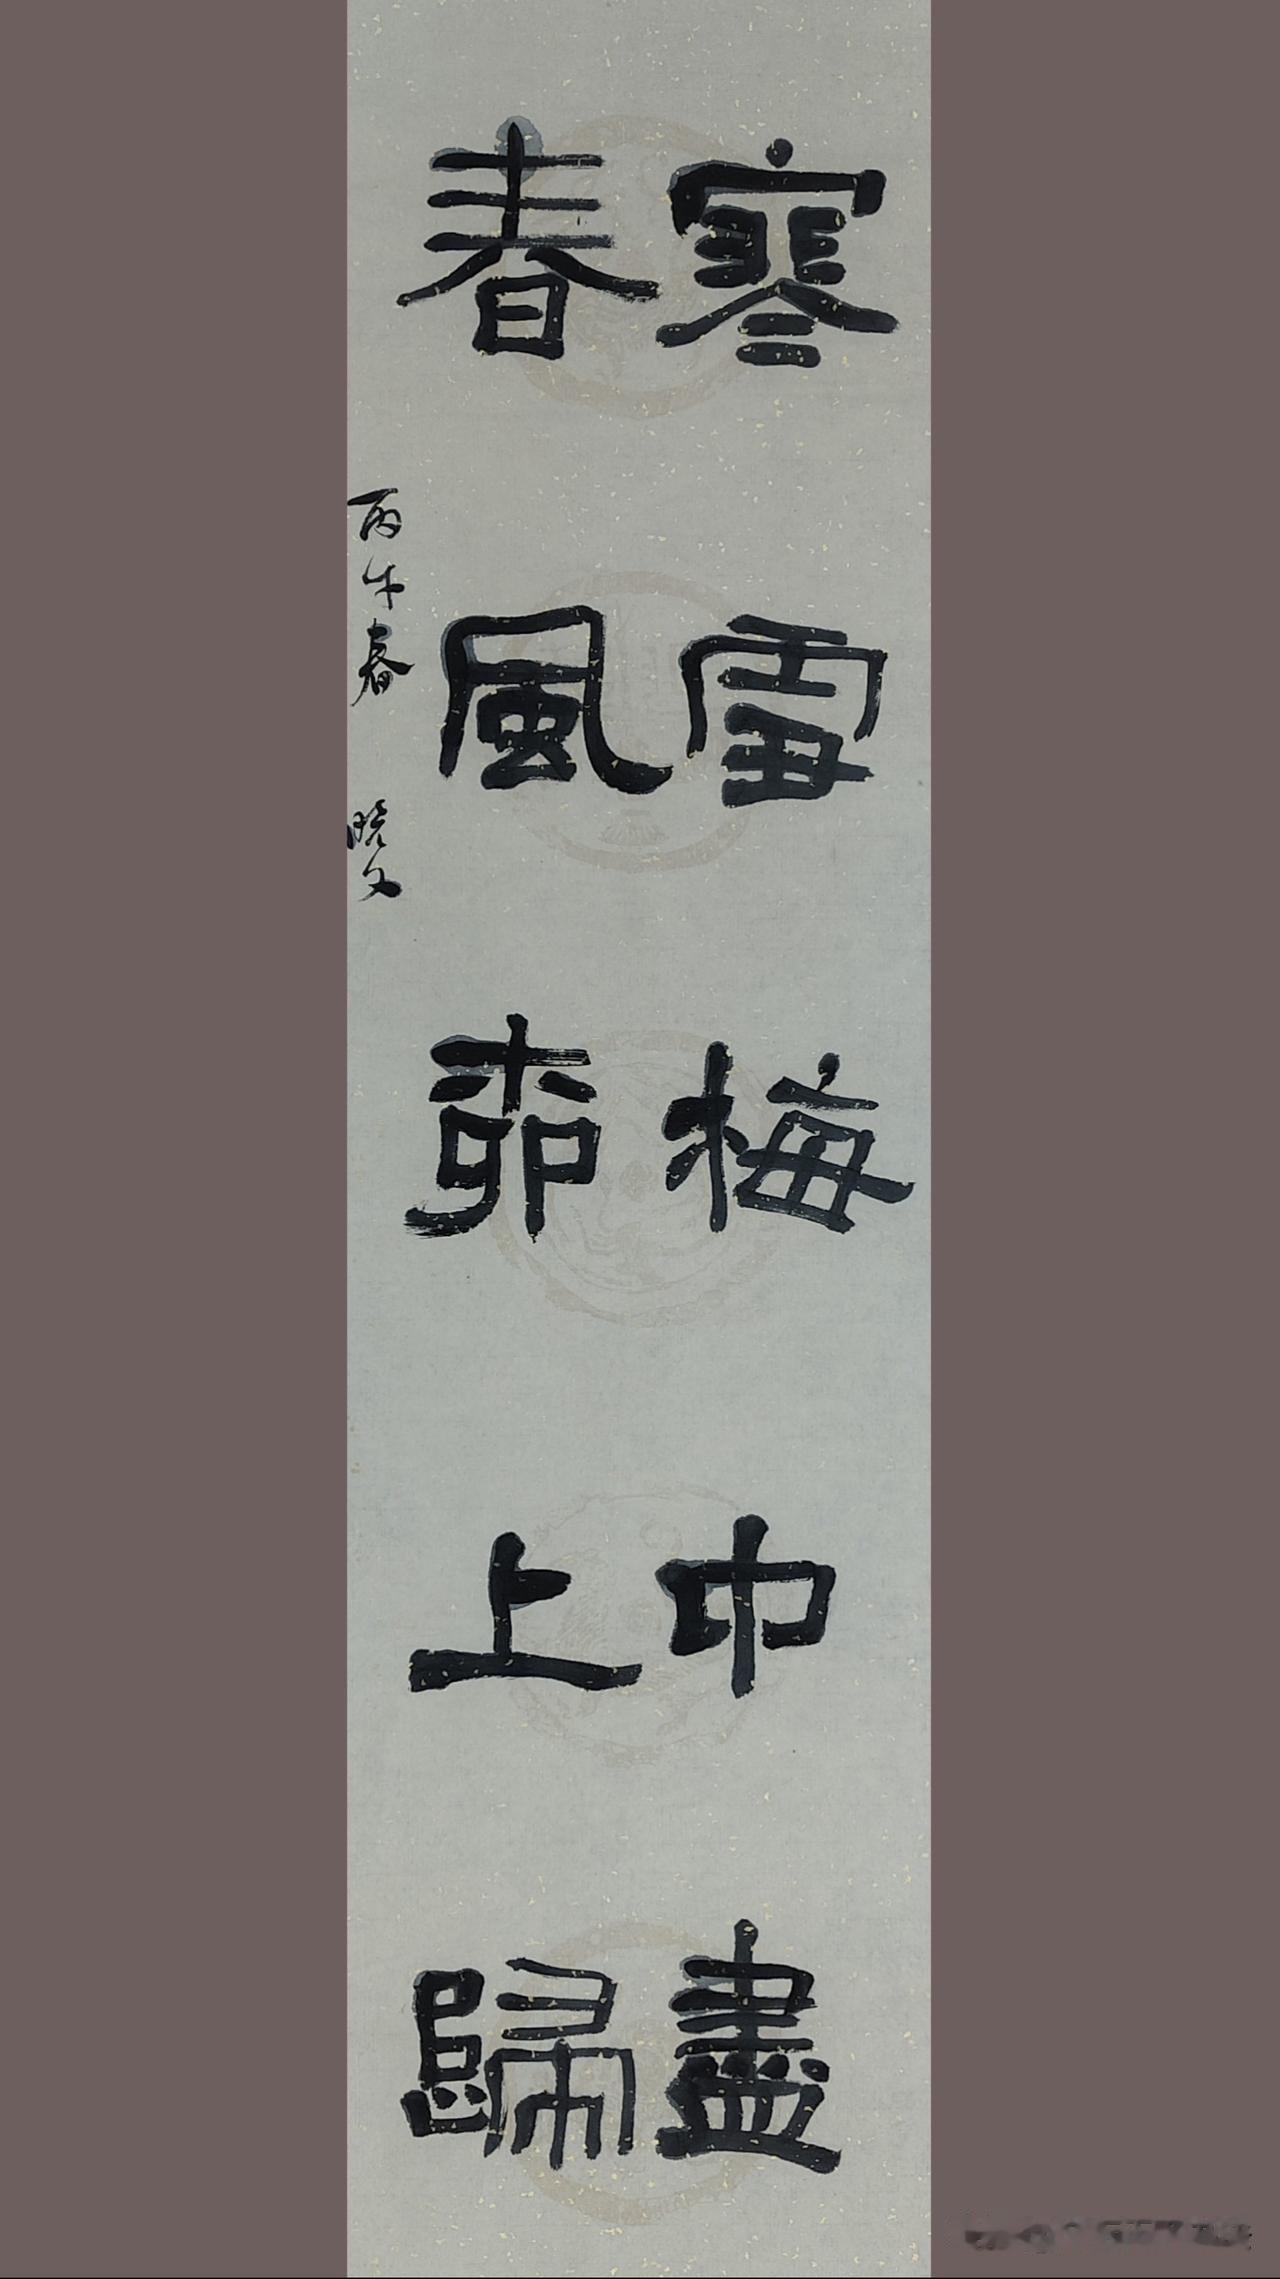 寒雪梅中盡
春風桺上歸
丙午春 曉文